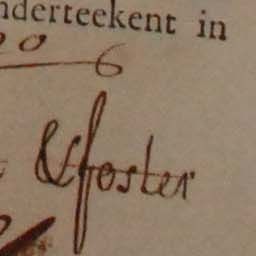 nderteekent in
20 6
& foster